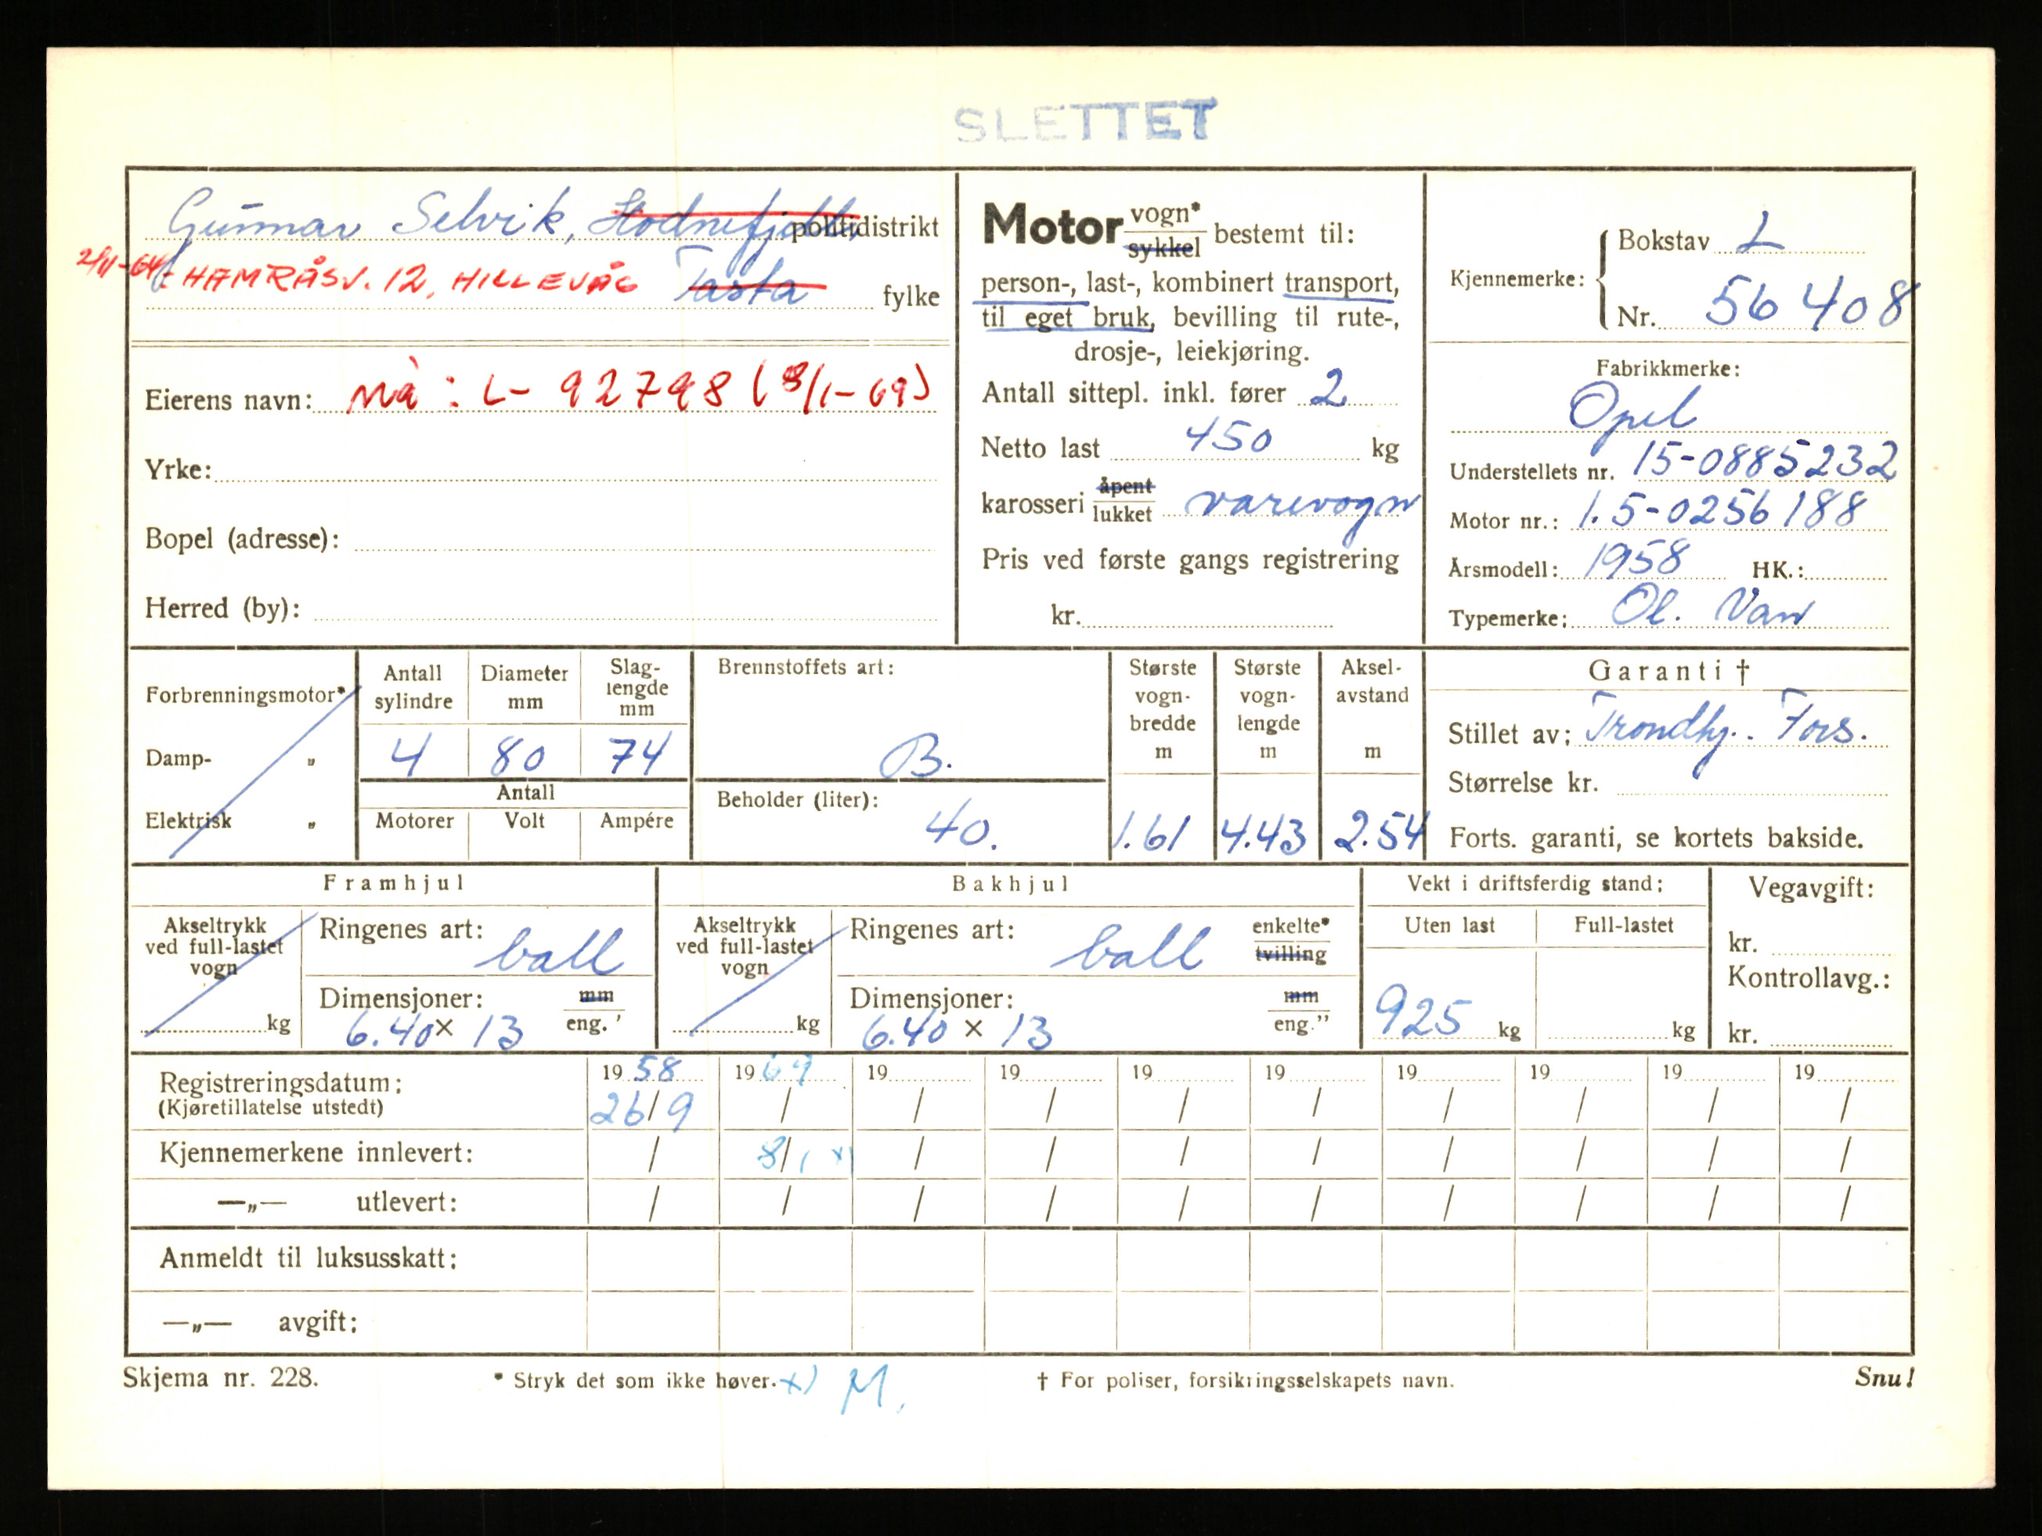 SLETTET
Gunnar Selvik, politidistrikt
2/11-64. HAMRÅSV. 12, HILLEVÅG Tasta fylke
Eierens navn: Nå: L- 92798 (8/1-69)
Yrke:
Bopel (adresse):
Herred (by):
Motor vogn* sykkel bestemt til:
person-, last-, kombinert transport,
til eget bruk, bevilling til rute-,
drosje-, leiekjøring.
Antall sittepl. inkl. fører 2
Netto last 450 kg
karosseri åpent lukket varevogn
Pris ved første gangs registrering
kr.
Kjennemerke: Bokstav L
Nr. 56408
Fabrikkmerke:
Opel
Understellets nr. 15-0885232
Motor nr.: 1.5-0256188
Årsmodell: 1958 HK.:
Typemerke: Ol. Van
Forbrenningsmotor*
Damp- „
Elektrisk „
Antall sylindre Diameter mm Slag-lengde mm
4 80 74
Antall
Motorer Volt Ampére
Brennstoffets art:
B.
Beholder (liter):
40.
Største vogn-bredde m 1.61
Største vogn-lengde m 4.43
Aksel-avstand m 2.54
Garanti †
Stillet av: Trondhj. Fors.
Størrelse kr.
Forts. garanti, se kortets bakside.
Framhjul
Akseltrykk ved full-lastet vogn kg
Ringenes art: ball
Dimensjoner: mm eng. '
6.40 x 13
Bakhjul
Akseltrykk ved full-lastet vogn kg
Ringenes art: ball enkelte* tvilling
Dimensjoner: mm eng."
6.40 x 13
Vekt i driftsferdig stand:
Uten last Full-lastet
925 kg kg
Vegavgift:
kr.
Kontrollavg.:
kr.
Registreringsdatum: 19 58 19 69 19 19 19 19 19 19 19 19
(Kjøretillatelse utstedt) 26/9 / / / / / / / / /
Kjennemerkene innlevert: / 8/1 x) / / / / / / / /
—„— utlevert: / / / / / / / / / /
Anmeldt til luksusskatt:
—„— avgift:
Skjema nr. 228. * Stryk det som ikke høver. x) M. † For poliser, forsikringsselskapets navn. Snu!